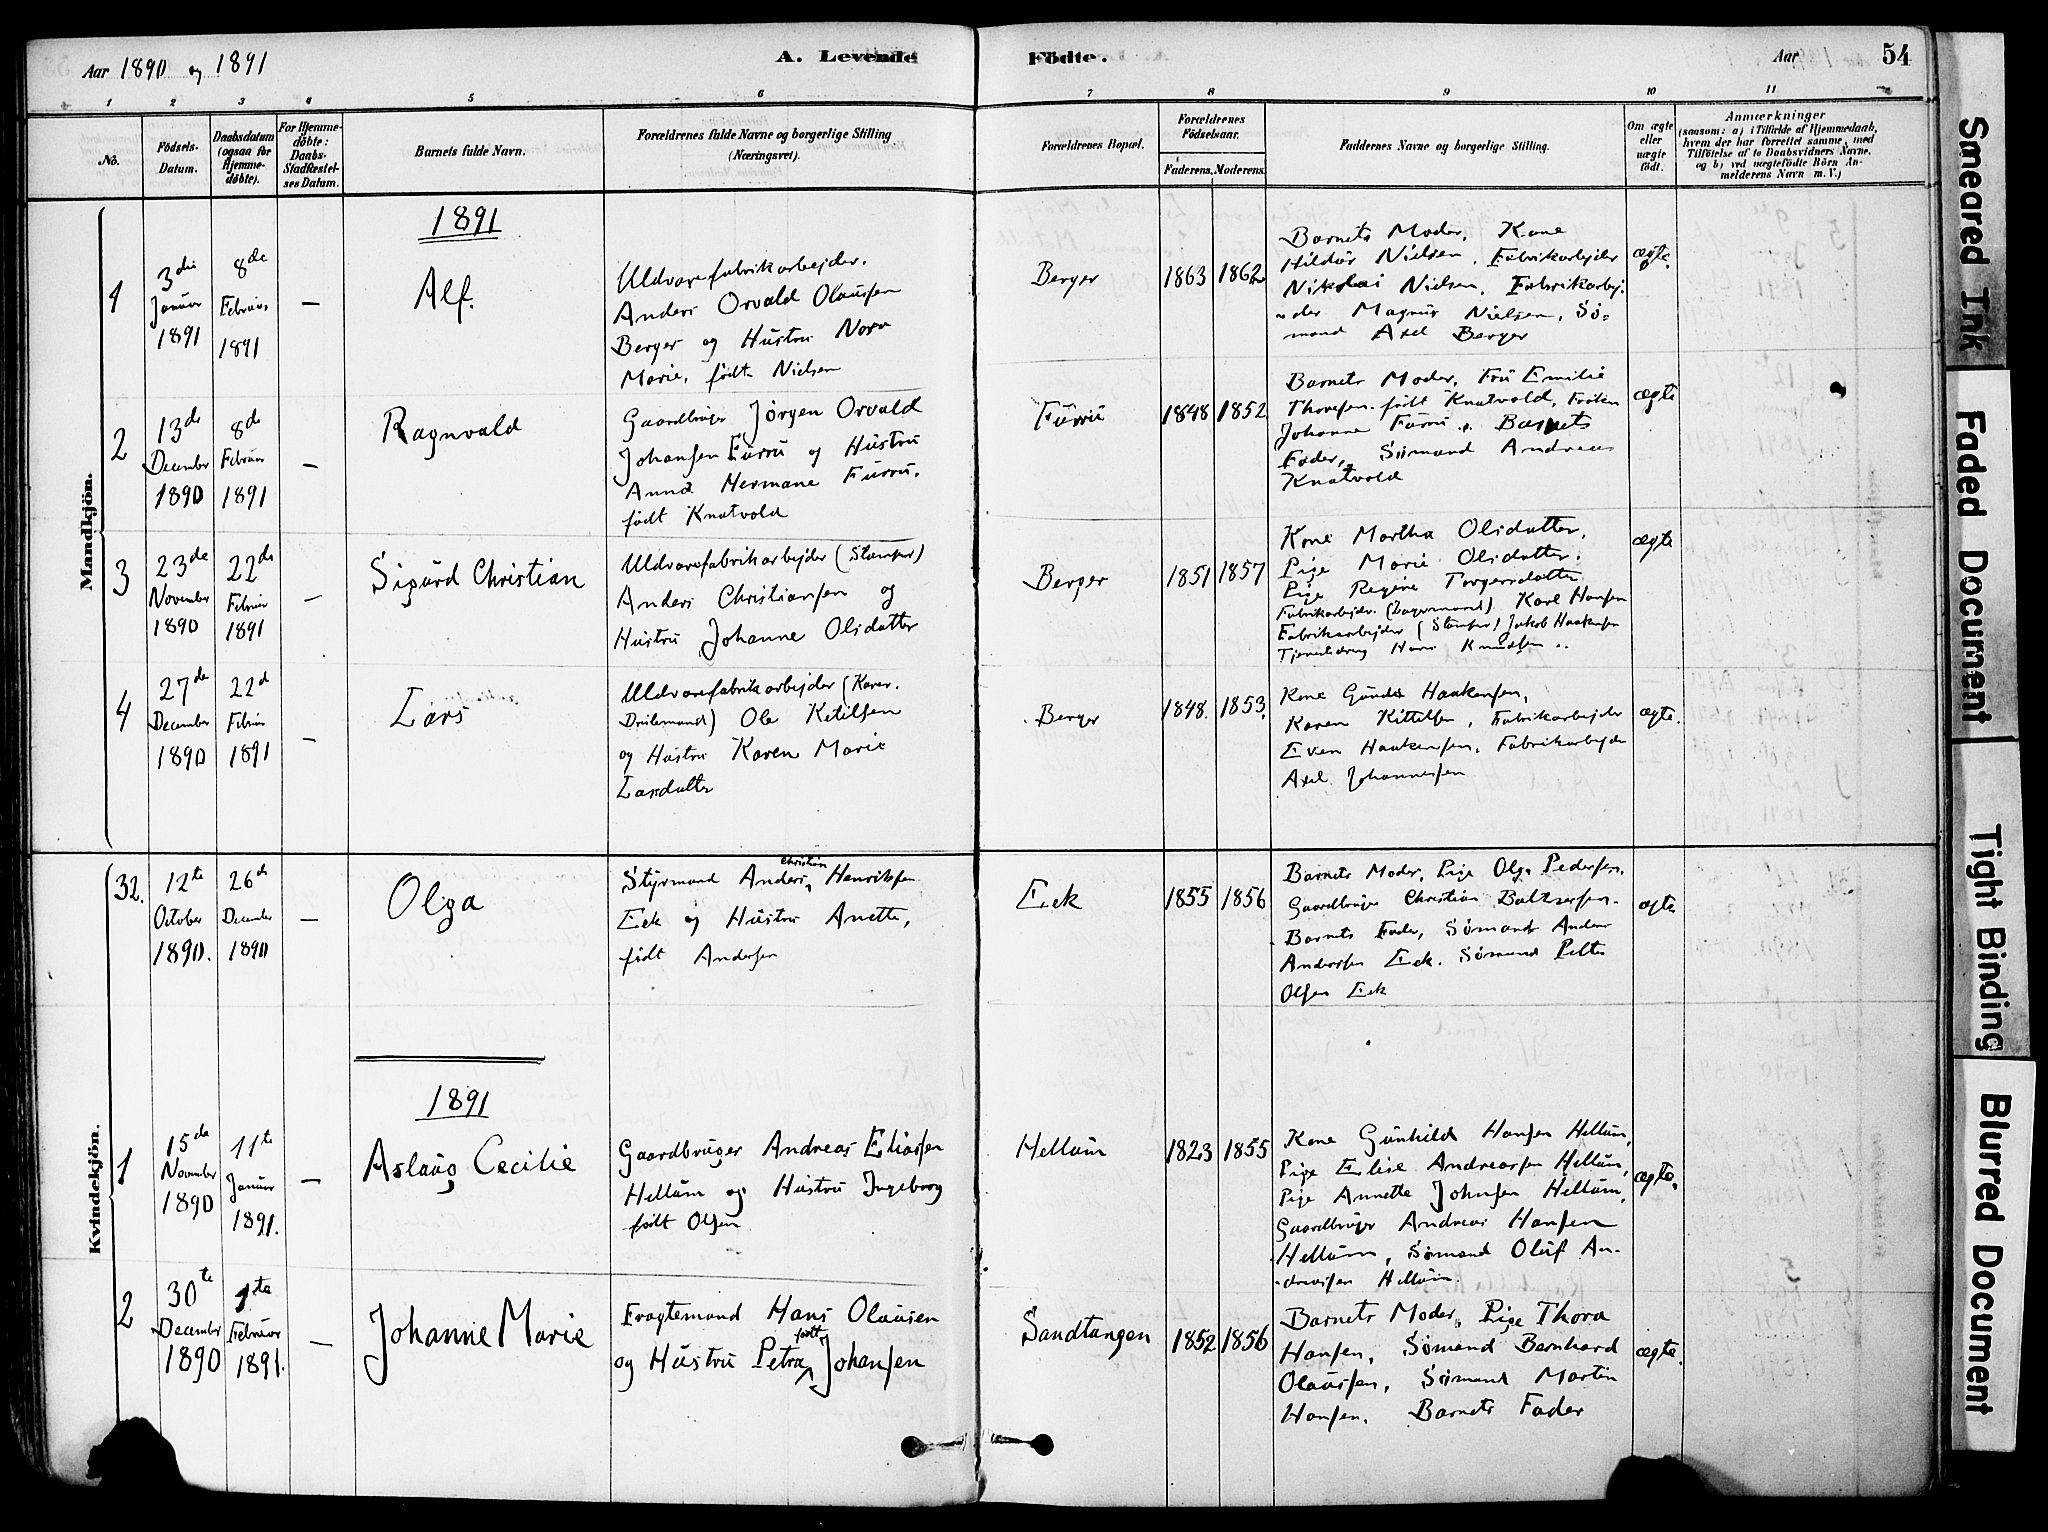 Aar 1890 og 1891
A. Levende Födte.
Aar
54
1 2 3 4 5 6 7 8 9 10 11
No.
Födsels-Datum.
Daabsdatum (ogsaa for Hjemme-döbte).
For Hjemme-döbte: Daabs-Stadfæstel-ses Datum.
Barnets fulde Navn.
Forældrenes fulde Navne og borgerlige Stilling (Næringsvei).
Forældrenes Bopæl.
Forældrenes Födselsaar.
Faderens. Moderens.
Faddernes Navne og borgerlige Stilling.
Om ægte eller uægte født.
Anmærkninger
(saasom: a) i Tilfælde af Hjemmedaab, hvem der har forrettet samme, med Tilföielse af to Daabsvidners Navne, og b) ved uægtefödte Börn An-melderens Navn m. V.)
Mandkjön.
1891
1
3die Januar 1891
8de Februar 1891
—
Alf.
Uldvarefabrikarbejder.
Anders Orvald Olaussen
Berger og Hustru Nora
Marie, født Nielsen
Berger
1863 1862
Barnets Moder, Kone
Hildur Nielsen, Fabrikarbejder
Nikolai Nielsen, Fabrikarbej-
der Magnus Nielsen, Sø-
mand Axel Berger
ægte
2
13de December 1890
8de Februar 1891
—
Ragnvald
Gaardbruger Jørgen Orvald
Johansen Furru og Hustru
Anna Hermane Furru,
født Knatvold
Furru
1848 1852
Barnets Moder, Fru Emilie
Thoresen født Knatvold, Frøken
Johanne Furru, Barnets
Fader, Sømand Andreas
Knatvold
ægte
3
23de November 1890
22de Februar 1891
—
Sigurd Christian
Uldvarefabrikarbejder (Stamper)
Anders Christiansen og
Hustru Johanne Olsdatter
Berger
1851 1857
Kone Martha Olsdatter,
Pige Marie Olsdatter.
Pige Regine Torgersdatter
Fabrikarbejder (Lagermand) Karl Hansen
Fabrikarbejder (Stamper) Jakob Haakensen
Tjenestedreng Hans Knudsen
ægte
4
27de December 1890
22d Februar 1891
—
Lars
Uldvarefabrikarbejder
Ole Ketilsen
og Hustru Karen Marie
Larsdatter
Berger
1848. 1853.
Kone Gunda Haakensen,
Karen Kittelsen, Fabrikarbejder
Even Haakensen, Fabrikarbejder
Axel Johannessen
ægte.
Kvindekjön.
32.
12te October 1890.
26d December 1890
—
Olga
Styrmand Anders Christian Henriksen
Eek og Hustru Anette,
født Andersen
Eek
1855 1856
Barnets Moder, Pige Olga Pedersen,
Gaardbruger Christian Baltzersen
Barnets Fader, Sømand Anders
Andersen Eek. Sømand Petter
Olsen Eek
ægte
1891
1
15da November 1890
11te Januar 1891.
—
Aslaug Cecilie
Gaardbruger Andreas Eliassen
Hellum og Hustru Ingeborg
født Olsen
Hellum
1823 1855
Kone Gunhild Hansen Hellum,
Pige Elise Andreassen Hellum,
Pige Annette Johnsen Hellum,
Gaardbruger Andreas Hansen
Hellum, Sømand Oluf An-
dreassen Hellum.
ægte.
2
30te December 1890
1ste Februar 1891.
—
Johanne Marie
Fragtemand Hans Olaussen
og Hustru Petra født Johansen
Sandtangen
1852 1856
Barnets Moder, Pige Thora
Hansen, Sømand Bernhard
Olaussen, Sømand Martin
Hansen, Barnets Fader
ægte.
Smeared Ink
Faded Document
Tight Binding
Blurred Document